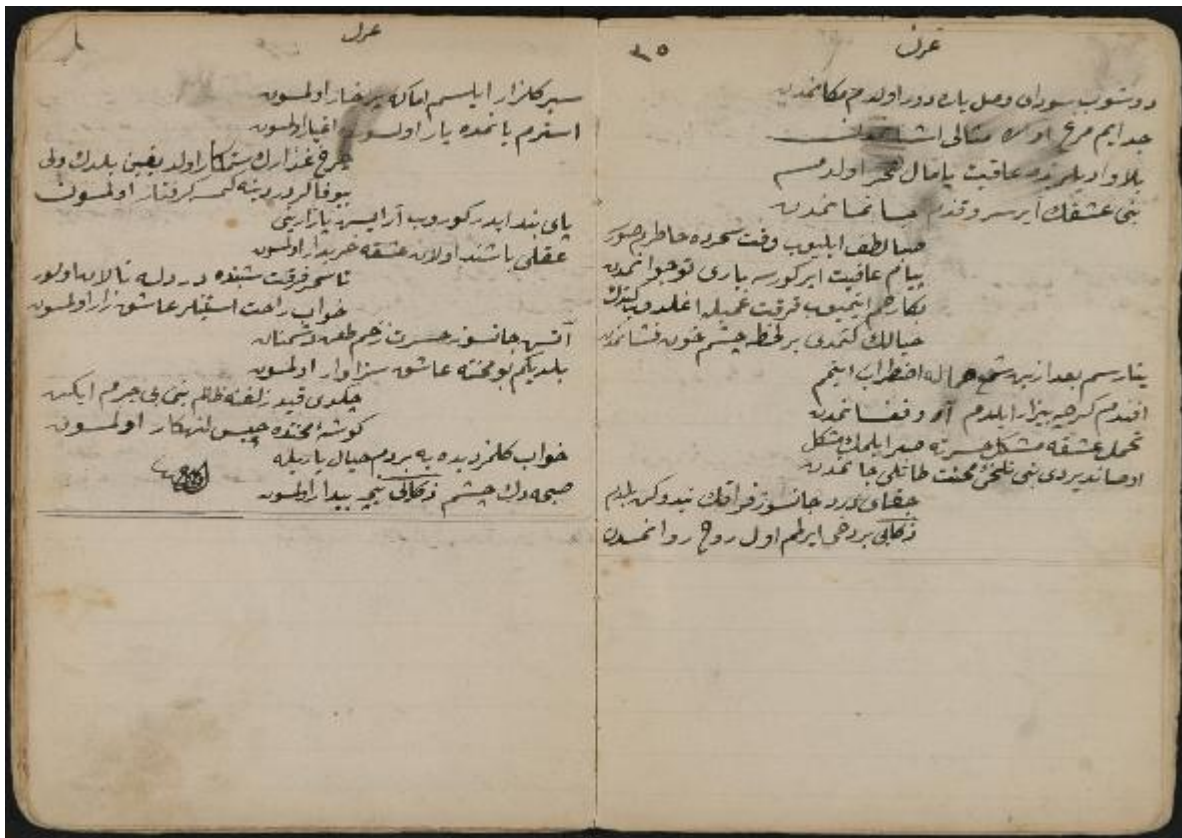 غزل
٣٥
دوشوب سوداى وصل ياره دور اولدم مكانمدن
جدايم مرغ اواره مثالى اشيانمدن
بلا واديلرنده عاقبت پامال هجر اولدم
بنى عشقك اير سرو قدم
صبا لطف ايليوب وقت سحرده خاطرم صور
پيام عافيت اير كورسه بارى نوجوانمدن
بكا رحم ايتميوب فرقت غميله اغلدوب كتدك
خيالك كتمدى بر لحظه چشم خون فشانمدن
ينارسم بعد ازين شمع اله اضطراب ايتمم
افندم كرچه بيزار ايلدم آه و فغانمدن
تحمل عشقه مشكل حسرته صبر ايلمك مشكل
اوصانديردى بنى تلخئ محنت طاتلى جانمدن
جفاى درد جانسوز فراقك نيدوكن بلدم
ذكائى بر دخى ايرلمم اول روح روانمدن
غزل
سير كلزار ايلسم اما كه بر خار اولمسون
استرم يانمده يار اولسون اغيار اولمسون
چرخ غدارك ستمكار اولديغين بلدك ولى
بيوفالر دردينه كمسه كرفتار اولمسون
پاى بند ايدر كوروب آرايش بازارينى
عقلى باشنده اولان عشقه خريدار اولمسون
تا سحر فرقت شبنده درد له نالان اولور
خواب راحت استينلر عاشق زار اولمسون
آتش جانسوز حسرت زخم طعن دشمنان
بلديكم بو محنته عاشق سزاوار اولمسون
چكدى قيد زلفنه ظالم بنى بى جرم ايكن
كوشۀ محنتده حبس كنهكار اولمسون
خواب كلمز ديده يه هر دم خيال يار يله
صبحه دك چشم ذكائى نيجه بيدار اولمسون